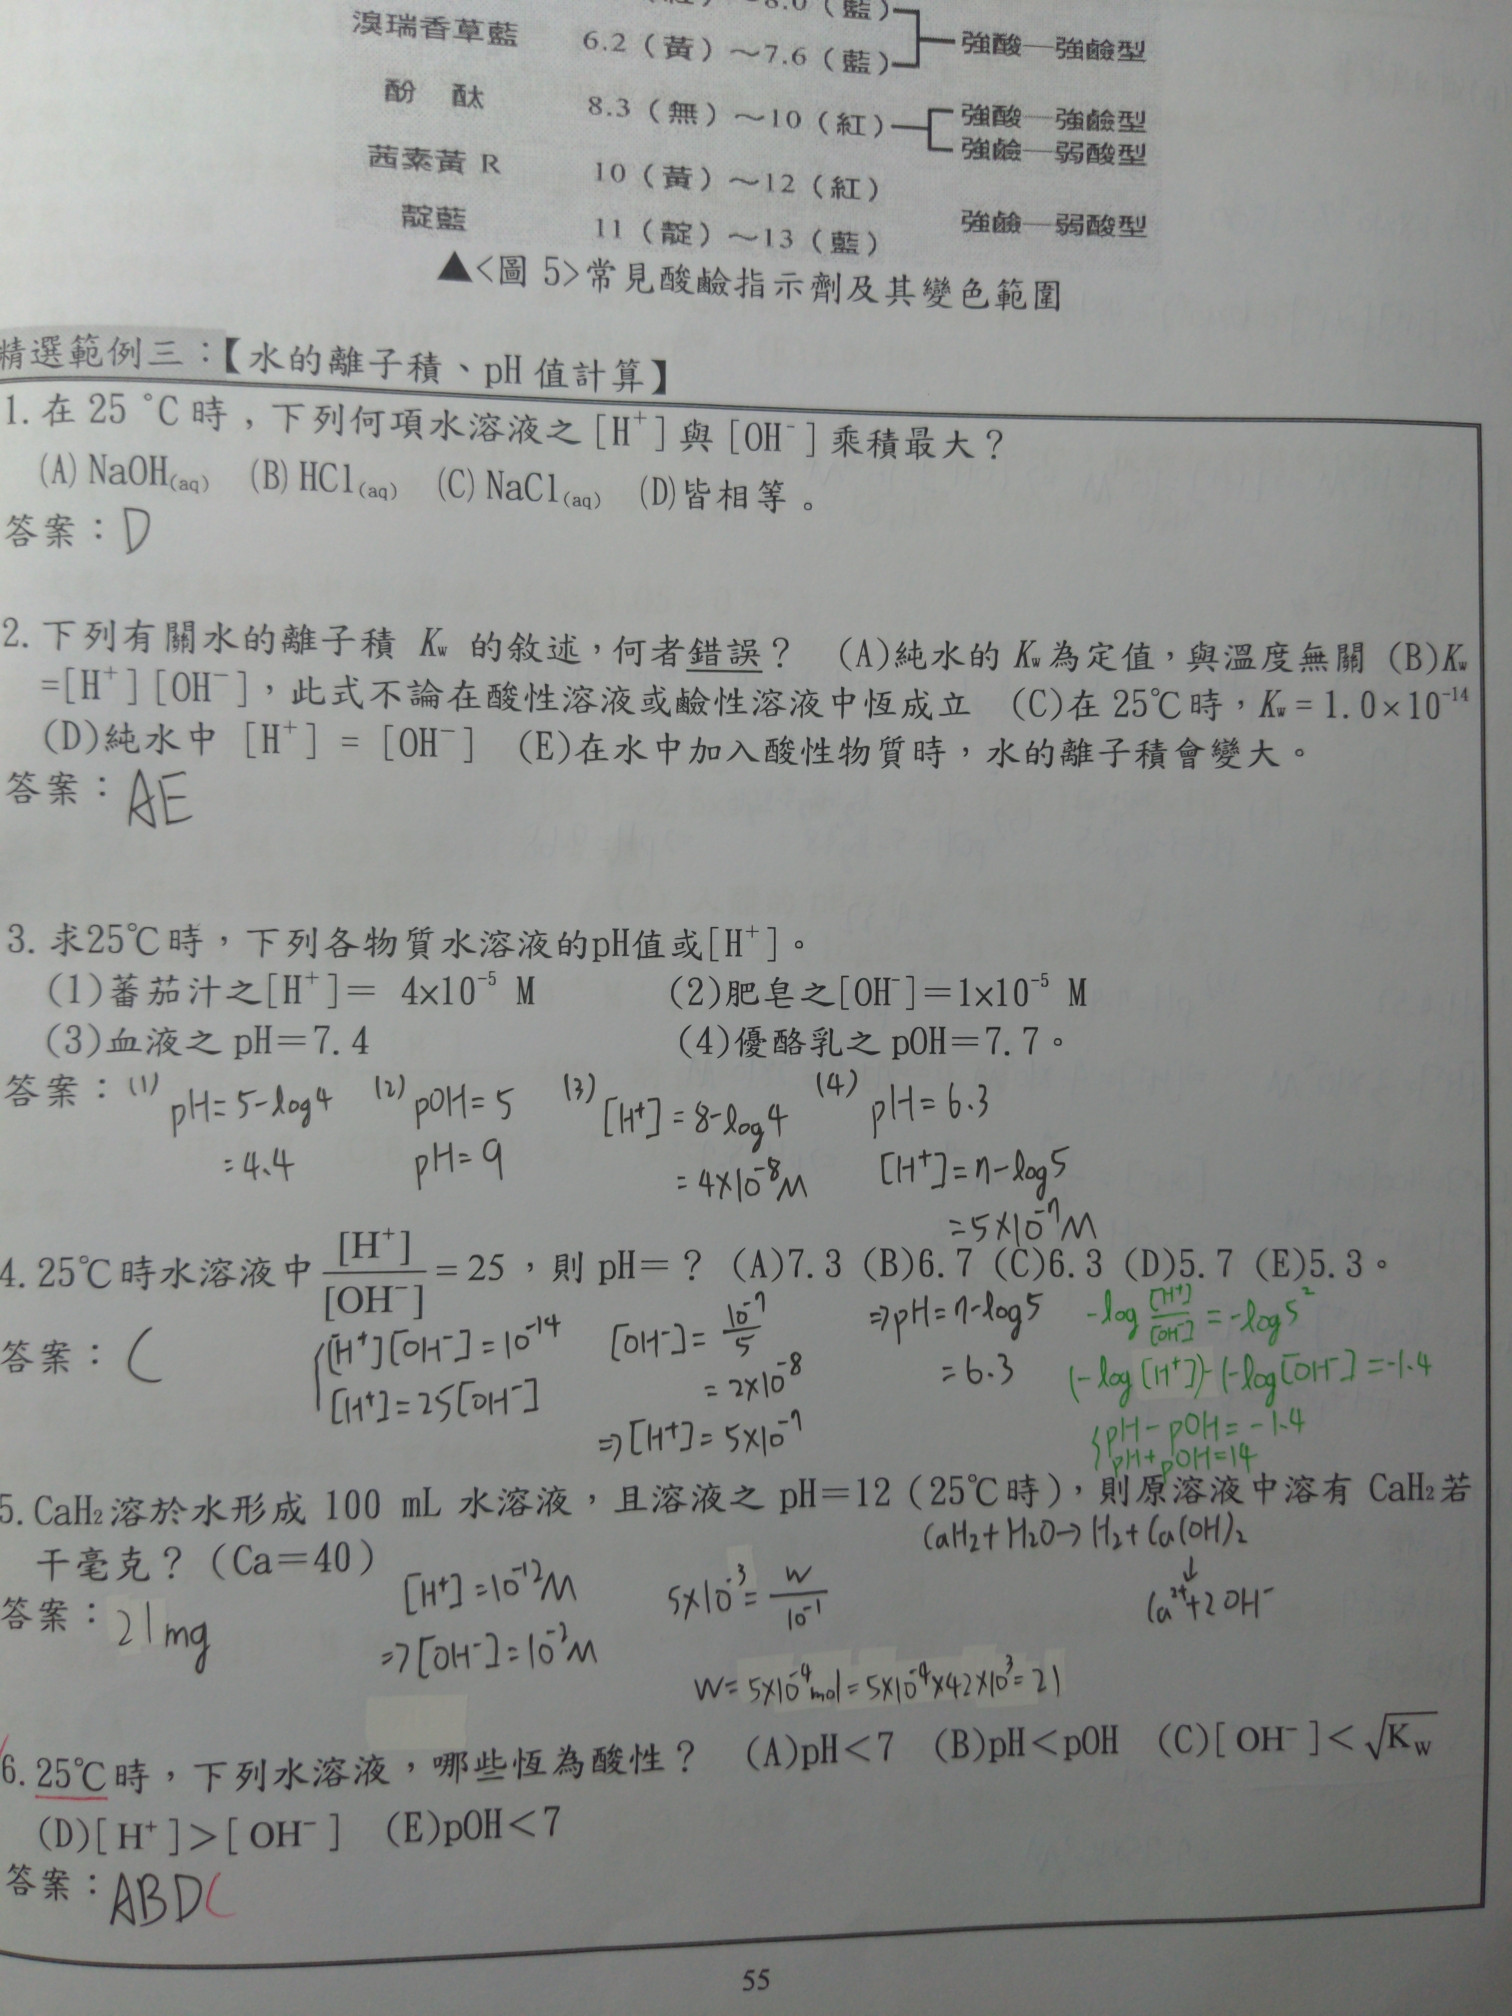 8.0（藍）
溴瑞香草藍 6.2（黃）～7.6（藍） 強酸—強鹼型
酚 酞 8.3（無）～10（紅） 強酸—強鹼型
強鹼—弱酸型
茜素黃 R 10（黃）～12（紅）
靛藍 11（靛）～13（藍） 強鹼—弱酸型
▲<圖 5>常見酸鹼指示劑及其變色範圍
精選範例三：【水的離子積、pH 值計算】
1. 在 25 ℃ 時，下列何項水溶液之 [H⁺] 與 [OH⁻] 乘積最大？
(A) NaOH(aq) (B) HCl(aq) (C) NaCl(aq) (D)皆相等。
答案：D
2. 下列有關水的離子積 Kw 的敘述，何者錯誤？ (A)純水的 Kw 為定值，與溫度無關 (B)Kw
=[H⁺][OH⁻]，此式不論在酸性溶液或鹼性溶液中恆成立 (C)在 25℃ 時，Kw = 1.0×10⁻¹⁴
(D)純水中 [H⁺] = [OH⁻] (E)在水中加入酸性物質時，水的離子積會變大。
答案：AE
3. 求25℃時，下列各物質水溶液的pH值或[H⁺]。
(1)蕃茄汁之[H⁺]＝ 4×10⁻⁵ M (2)肥皂之[OH⁻]＝1×10⁻⁵ M
(3)血液之 pH＝7.4 (4)優酪乳之 pOH＝7.7。
答案：(1) pH=5-log4 (2) pOH=5 (3) [H⁺]=8-log4 (4) pH=6.3
=4.4 pH=9 =4×10⁻⁸M [H⁺]=7-log5
=5×10⁻⁷M
4. 25℃時水溶液中 [H⁺]/[OH⁻] = 25，則 pH＝？ (A)7.3 (B)6.7 (C)6.3 (D)5.7 (E)5.3。
答案：C [H⁺][OH⁻]=10⁻¹⁴ [OH⁻]=10⁻⁷/5 ⇒pH=7-log5 -log [H⁺]/[OH⁻] =-log5²
[H⁺]=25[OH⁻] =2×10⁻⁸ =6.3 (-log[H⁺])-(-log[OH⁻]=-1.4
⇒[H⁺]=5×10⁻⁷ pH-pOH=-1.4
pH+pOH=14
5. CaH₂溶於水形成 100 mL 水溶液，且溶液之 pH＝12（25℃時），則原溶液中溶有 CaH₂若
干毫克？（Ca＝40） CaH₂+H₂O→H₂+Ca(OH)₂
答案：21mg [H⁺]=10⁻¹²M 5×10⁻³=W/10⁻¹ ↓
Ca²⁺+2OH⁻
⇒[OH⁻]=10⁻²M
W=5×10⁻⁴mol=5×10⁻⁴×42×10³=21
6. 25℃時，下列水溶液，哪些恆為酸性？ (A)pH＜7 (B)pH＜pOH (C)[OH⁻]＜√Kw
(D)[H⁺]＞[OH⁻] (E)pOH＜7
答案：ABDC
55